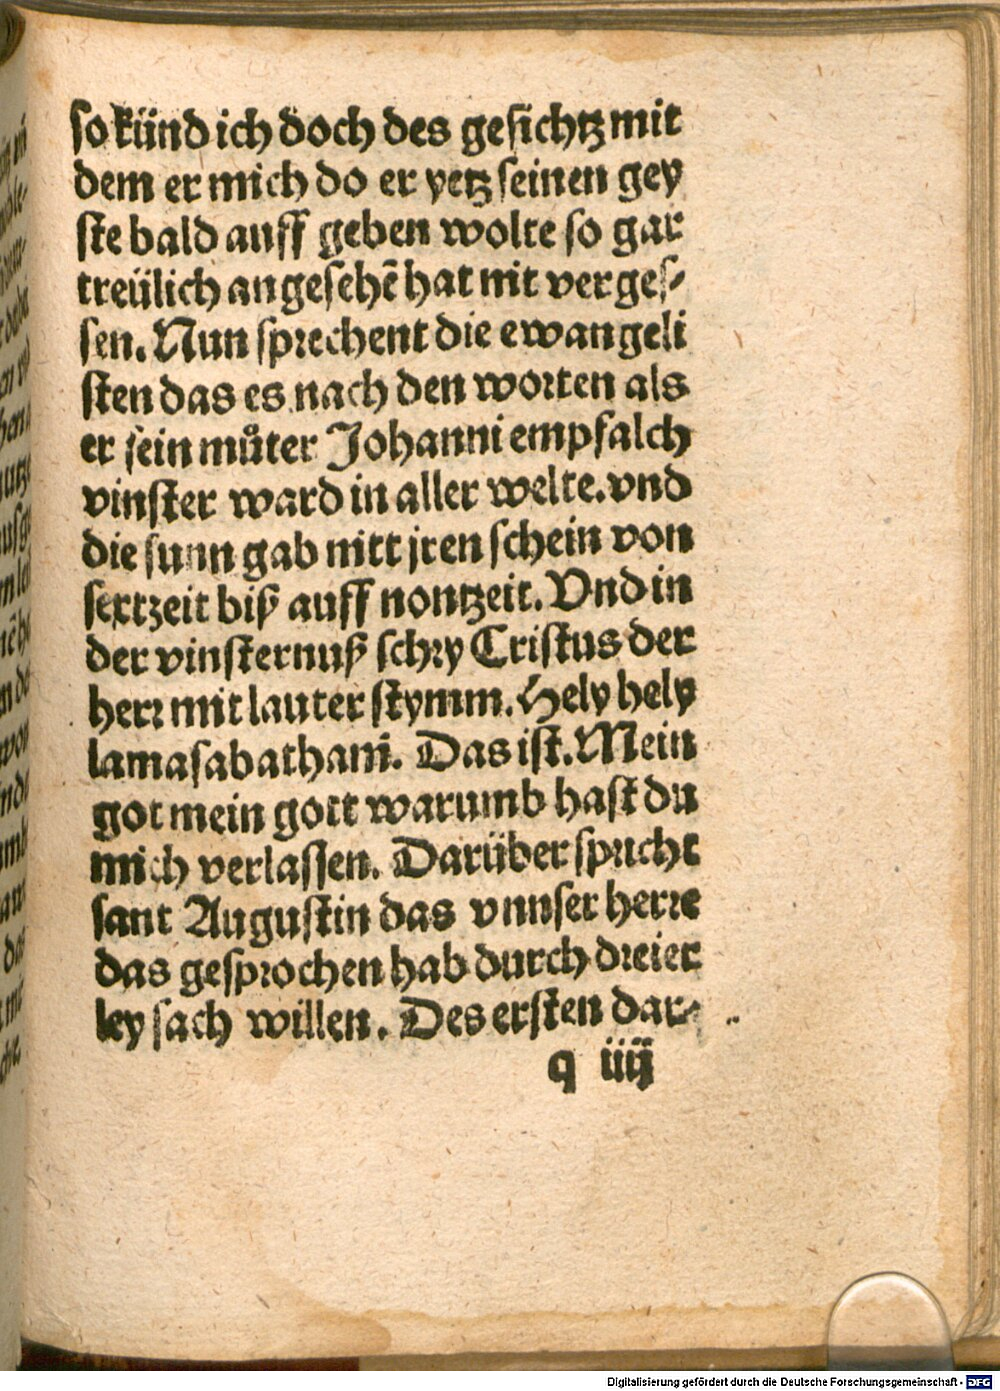 so künd ich doch des gesichtz mit
dem er mich do er yetz seinen gey
ste bald auff geben wolte so gar
treülich angesehē hat nit verges⸗
sen. Nun sprechent die ewangeli
sten das es nach den worten als
er sein můter Johanni empfalch
vinster ward in aller welte. vnd
die sunn gab nitt jren schein von
sextzeit biß auff nontzeit. Vnd in
der vinsternuß schry Cristus der
herr mit lauter stymm. Hely hely
lamasabathani. Das ist. Mein
got mein gott warumb hast du
mich verlassen. Darüber spricht
sant Augustin das vnnser herre
das gesprochen hab durch dreier
ley sach willen. Des ersten dar⸗
q iiij
Digitalisierung gefördert durch die Deutsche Forschungsgemeinschaft - DFG